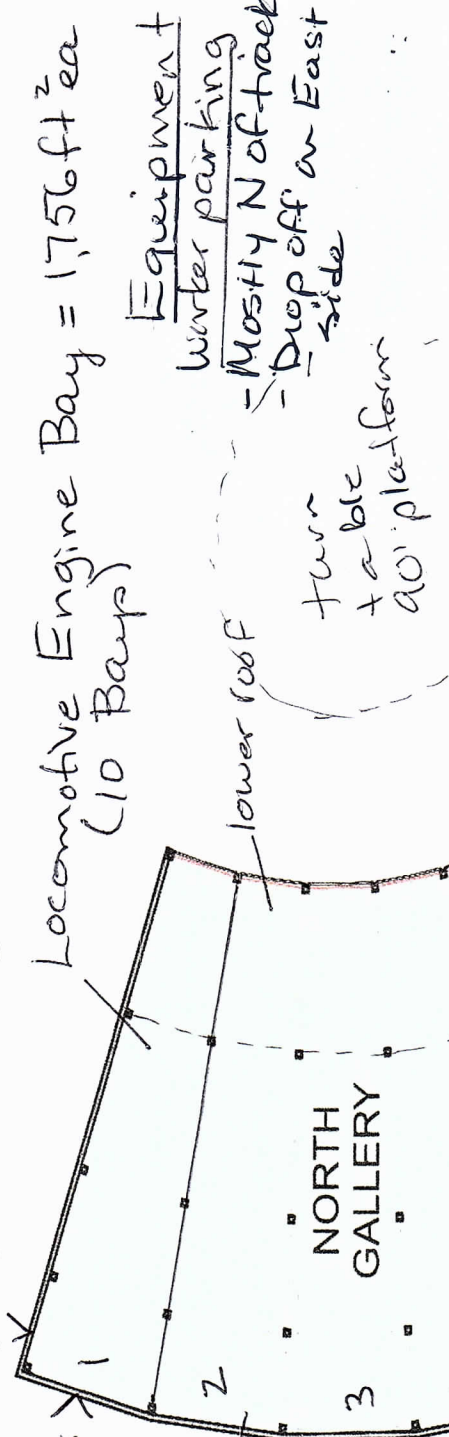 Locomotive Engine Bay = 1,756 ft² ea
(10 Bays)
Equipment
Worker parking
- Mostly N of track
- Drop off on East
side
lower roof
turn
table
90' platform
NORTH
GALLERY
1
2
3